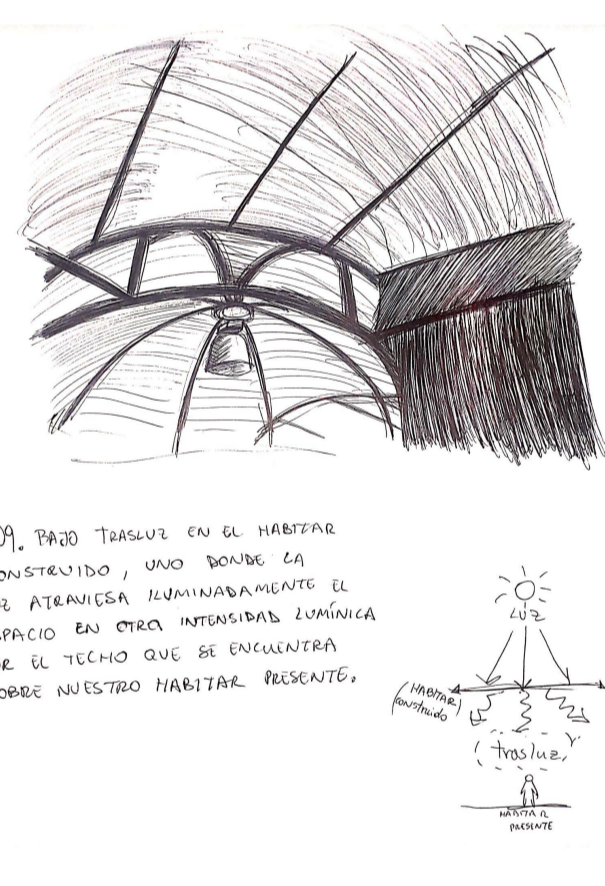 09. BAJO TRASLUZ EN EL HABITAR
ONSTRUIDO, UNO DONDE LA
Z ATRAVIESA ILUMINADAMENTE EL
PACIO EN OTRA INTENSIDAD LUMÍNICA
R EL TECHO QUE SE ENCUENTRA
OBRE NUESTRO HABITAR PRESENTE.
LUZ
(HABITAR
construido)
(trasluz)
HABITAR
PRESENTE